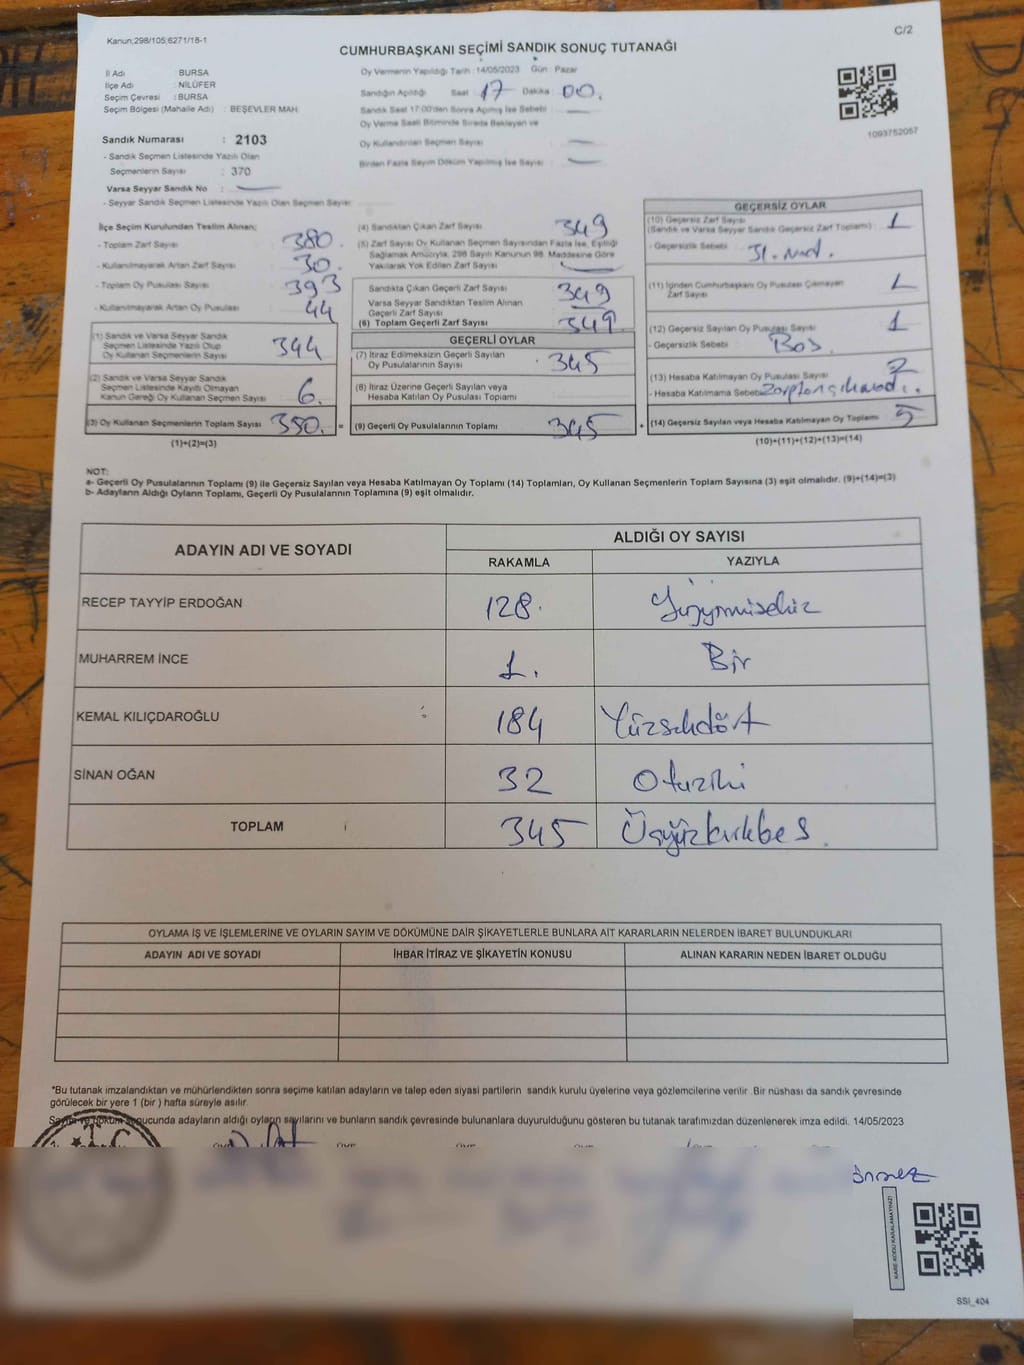 Kanun;298/105;6271/18-1
C/2
CUMHURBAŞKANI SEÇİMİ SANDIK SONUÇ TUTANAĞI
İl Adı : BURSA
İlçe Adı : NİLÜFER
Seçim Çevresi : BURSA
Seçim Bölgesi (Mahalle Adı) : BEŞEVLER MAH.
Sandık Numarası : 2103
- Sandık Seçmen Listesinde Yazılı Olan
Seçmenlerin Sayısı : 370
Varsa Seyyar Sandık No :
- Seyyar Sandık Seçmen Listesinde Yazılı Olan Seçmen Sayısı:
Oy Vermenin Yapıldığı Tarih : 14/05/2023 Gün : Pazar
Sandığın Açıldığı Saat : 17 Dakika : 00.
Sandık Saat 17:00'den Sonra Açılmış İse Sebebi :
Oy Verme Saati Bitiminde Sırada Bekleyen ve
Oy Kullandırılan Seçmen Sayısı :
Birden Fazla Sayım Döküm Yapılmış İse Sayısı :
1093752057
İlçe Seçim Kurulundan Teslim Alınan;
- Toplam Zarf Sayısı : 380.
- Kullanılmayarak Artan Zarf Sayısı : 30.
- Toplam Oy Pusulası Sayısı : 393
- Kullanılmayarak Artan Oy Pusulası : 44
(1) Sandık ve Varsa Seyyar Sandık
Seçmen Listesinde Yazılı Olup
Oy Kullanan Seçmenlerin Sayısı 344
(2) Sandık ve Varsa Seyyar Sandık
Seçmen Listesinde Kayıtlı Olmayan
Kanun Gereği Oy Kullanan Seçmen Sayısı 6.
(3) Oy Kullanan Seçmenlerin Toplam Sayısı 350. =
(1)+(2)=(3)
(4) Sandıktan Çıkan Zarf Sayısı : 349
(5) Zarf Sayısı Oy Kullanan Seçmen Sayısından Fazla İse, Eşitliği
Sağlamak Amacıyla; 298 Sayılı Kanunun 98. Maddesine Göre
Yakılarak Yok Edilen Zarf Sayısı :
Sandıkta Çıkan Geçerli Zarf Sayısı : 349
Varsa Seyyar Sandıktan Teslim Alınan
Geçerli Zarf Sayısı
(6) Toplam Geçerli Zarf Sayısı : 349.
GEÇERLİ OYLAR
(7) İtiraz Edilmeksizin Geçerli Sayılan
Oy Pusulalarının Sayısı : 345
(8) İtiraz Üzerine Geçerli Sayılan veya
Hesaba Katılan Oy Pusulası Toplamı
(9) Geçerli Oy Pusulalarının Toplamı 345 +
GEÇERSİZ OYLAR
(10) Geçersiz Zarf Sayısı
(Sandık ve Varsa Seyyar Sandık Geçersiz Zarf Toplamı) : 1
- Geçersizlik Sebebi :
(11) İçinden Cumhurbaşkanı Oy Pusulası Çıkmayan
Zarf Sayısı : 1
(12) Geçersiz Sayılan Oy Pusulası Sayısı : 1
- Geçersizlik Sebebi : Boş.
(13) Hesaba Katılmayan Oy Pusulası Sayısı : 2
- Hesaba Katılmama Sebebi:
(14) Geçersiz Sayılan veya Hesaba Katılmayan Oy Toplamı 5
(10)+(11)+(12)+(13)=(14)
NOT:
a- Geçerli Oy Pusulalarının Toplamı (9) ile Geçersiz Sayılan veya Hesaba Katılmayan Oy Toplamı (14) Toplamları, Oy Kullanan Seçmenlerin Toplam Sayısına (3) eşit olmalıdır. (9)+(14)=(3)
b- Adayların Aldığı Oyların Toplamı, Geçerli Oy Pusulalarının Toplamına (9) eşit olmalıdır.
ADAYIN ADI VE SOYADI ALDIĞI OY SAYISI
RAKAMLA YAZIYLA
RECEP TAYYİP ERDOĞAN 128. Yüzyirmisekiz
MUHARREM İNCE 1. Bir
KEMAL KILIÇDAROĞLU 184 Yüzseksendört
SİNAN OĞAN 32 Otuziki
TOPLAM 345 Üçyüzkırkbeş.
OYLAMA İŞ VE İŞLEMLERİNE VE OYLARIN SAYIM VE DÖKÜMÜNE DAİR ŞİKAYETLERLE BUNLARA AİT KARARLARIN NELERDEN İBARET BULUNDUKLARI
ADAYIN ADI VE SOYADI İHBAR İTİRAZ VE ŞİKAYETİN KONUSU ALINAN KARARIN NEDEN İBARET OLDUĞU
*Bu tutanak imzalandıktan ve mühürlendikten sonra seçime katılan adayların ve talep eden siyasi partilerin sandık kurulu üyelerine veya gözlemcilerine verilir. Bir nüshası da sandık çevresinde
görülecek bir yere 1 (bir ) hafta süreyle asılır.
Sayım ve döküm sonucunda adayların aldığı oyların sayılarını ve bunların sandık çevresinde bulunanlara duyurulduğunu gösteren bu tutanak tarafımızdan düzenlenerek imza edildi. 14/05/2023
KARE KODU KARALAMAYINIZ!
SSİ_404